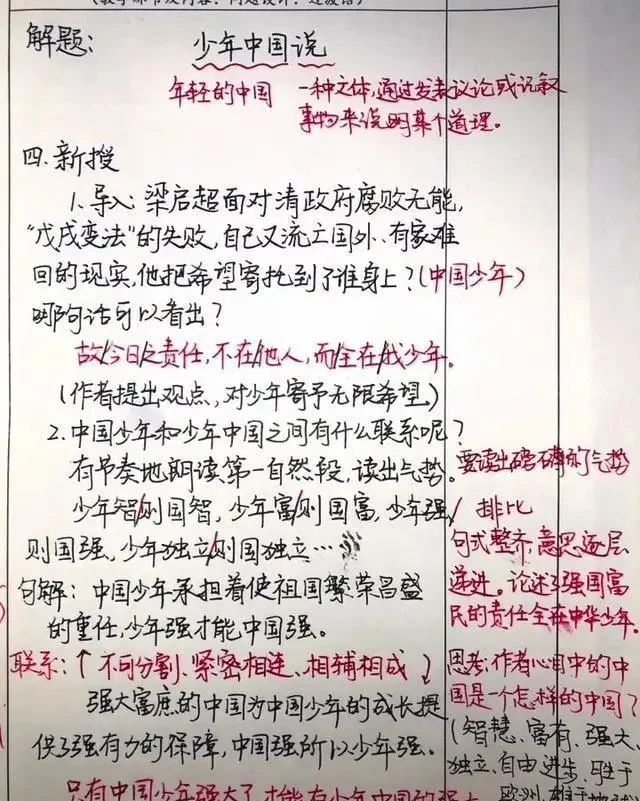 解题：
少年中国说
年轻的中国 一种文体，通过发表议论或记叙
事物来说明某个道理。
四.新授
1.导入：梁启超面对清政府腐败无能，
“戊戌变法”的失败，自己又流亡国外、有家难
回的现实，他把希望寄托到了谁身上？（中国少年）
哪句话可以看出？
故/今日之责任，不在/他人，而/全在/我少年。
（作者提出观点，对少年寄予无限希望。）
2.中国少年和少年中国之间有什么联系呢？
有节奏地朗读第一自然段，读出气势。
要读出磅礴的气势
少年智/则国智，少年富/则国富，少年强/
则国强，少年独立/则国独立…
排比
句式整齐，意思逐层
递进。论述了强国富
民的责任全在中华少年。
句解：中国少年承担着使祖国繁荣昌盛
的重任，少年强才能中国强。
联系：↑不可分割、紧密相连、相辅相成↓
强大富庶的中国为中国少年的成长提
供了强有力的保障，中国强所以少年强。
思考：作者心目中的中
国是一个怎样的中国？
（智慧、富有、强大、
独立、自由、进步、胜于
只有中国少年强大了，才能有少年中国的强大